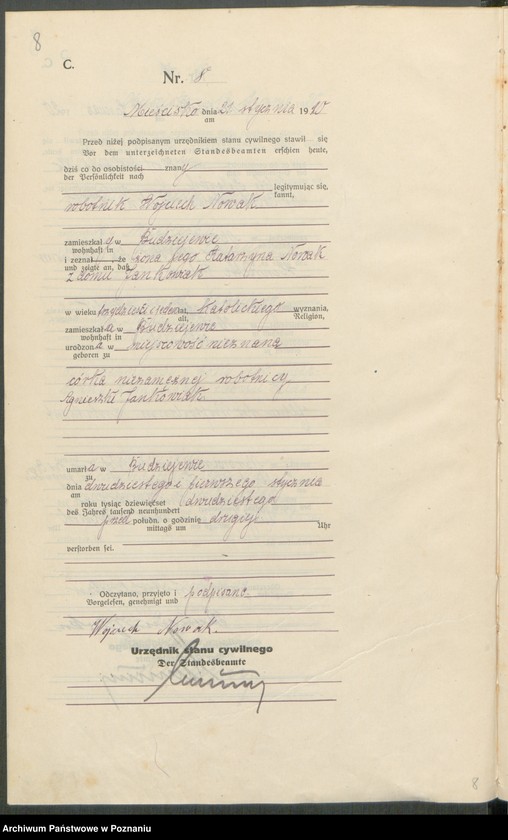 8
C.
Nr. 8
Mieścisko dnia 21 stycznia 1920
am
Przed niżej podpisanym urzędnikiem stanu cywilnego stawił się
Vor dem unterzeichneten Standesbeamten erschien heute,
dziś co do osobistości znany
der Persönlichkeit nach
legitymując się,
kannt,
robotnik Wojciech Nowak
zamieszkały w Budziejewie
wohnhaft in
i zeznał, że żona jego Katarzyna Nowak
und zeigte an, daß
z domu Jankowiak
w wieku lat, katolickiego wyznania,
alt, Religion,
zamieszkała w Budziejewie
wohnhaft in
urodzona w miejscowość nieznana
geboren zu
córka niezamężnej robotnicy
Agnieszki Jankowiak
umarła w Budziejewie
zu
dnia dwudziestego i pierwszego stycznia
am
roku tysiąc dziewięćset dwudziestego
des Jahres tausend neunhundert
przed połudn. o godzinie drugiej
mittags um Uhr
verstorben sei.
Odczytano, przyjęto i podpisano
Vorgelesen, genehmigt und
Wojciech Nowak.
Urzędnik stanu cywilnego
Der Standesbeamte
8
Archiwum Państwowe w Poznaniu